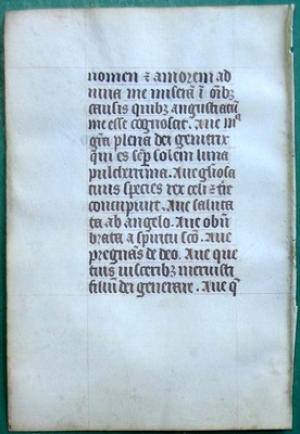 nomen ⁊ amorem ad
iuua me miserā ī oībꝫ
causis quibꝫ angustiatū
me esse cognoscit. Aue mᵃ
grā plena dei genitrix
qui es suꝑ solem luna
pulcherrima. Aue gl̄iosa
tuus species rex celi ⁊ t̄re
concupiuit. Aue saluta
ta ab angelo. Aue obū
brata a spiritu sc̄o. Aue
pregnās de deo. Aue que
tuis uisceribꝫ meruisti
filiū dei generare. Aue q̄